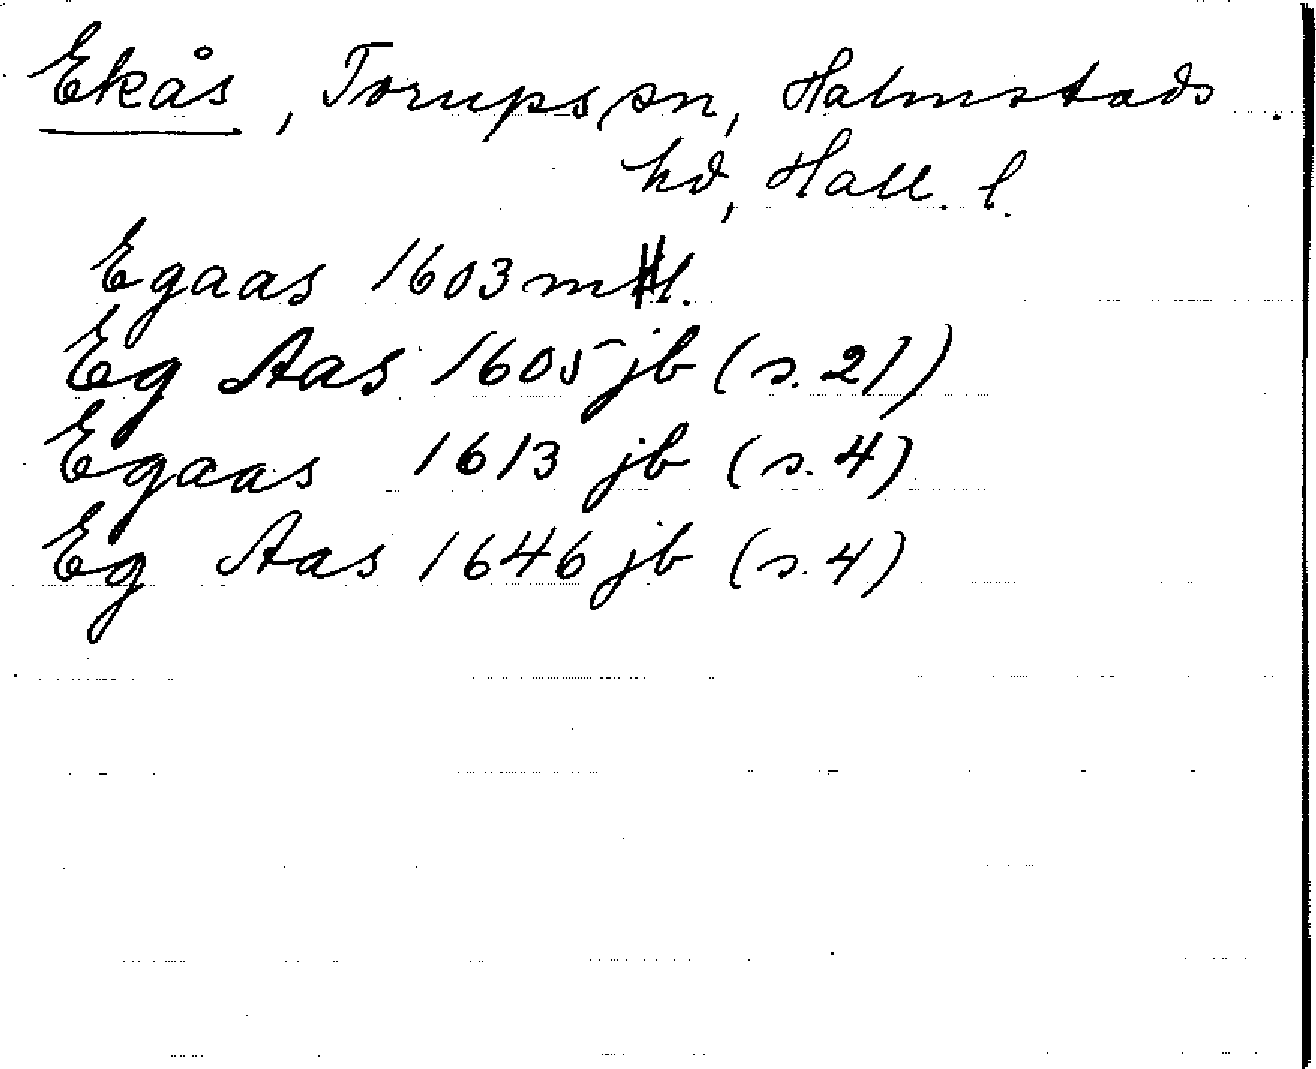 Ekås, Torups sn, Halmstads
hd, Hall. l.
Egaas 1603
Eg Aas 1605 jb (s. 21)
Egaas 1613 jb (s. 4)
Eg Aas 1646 jb (s. 4)